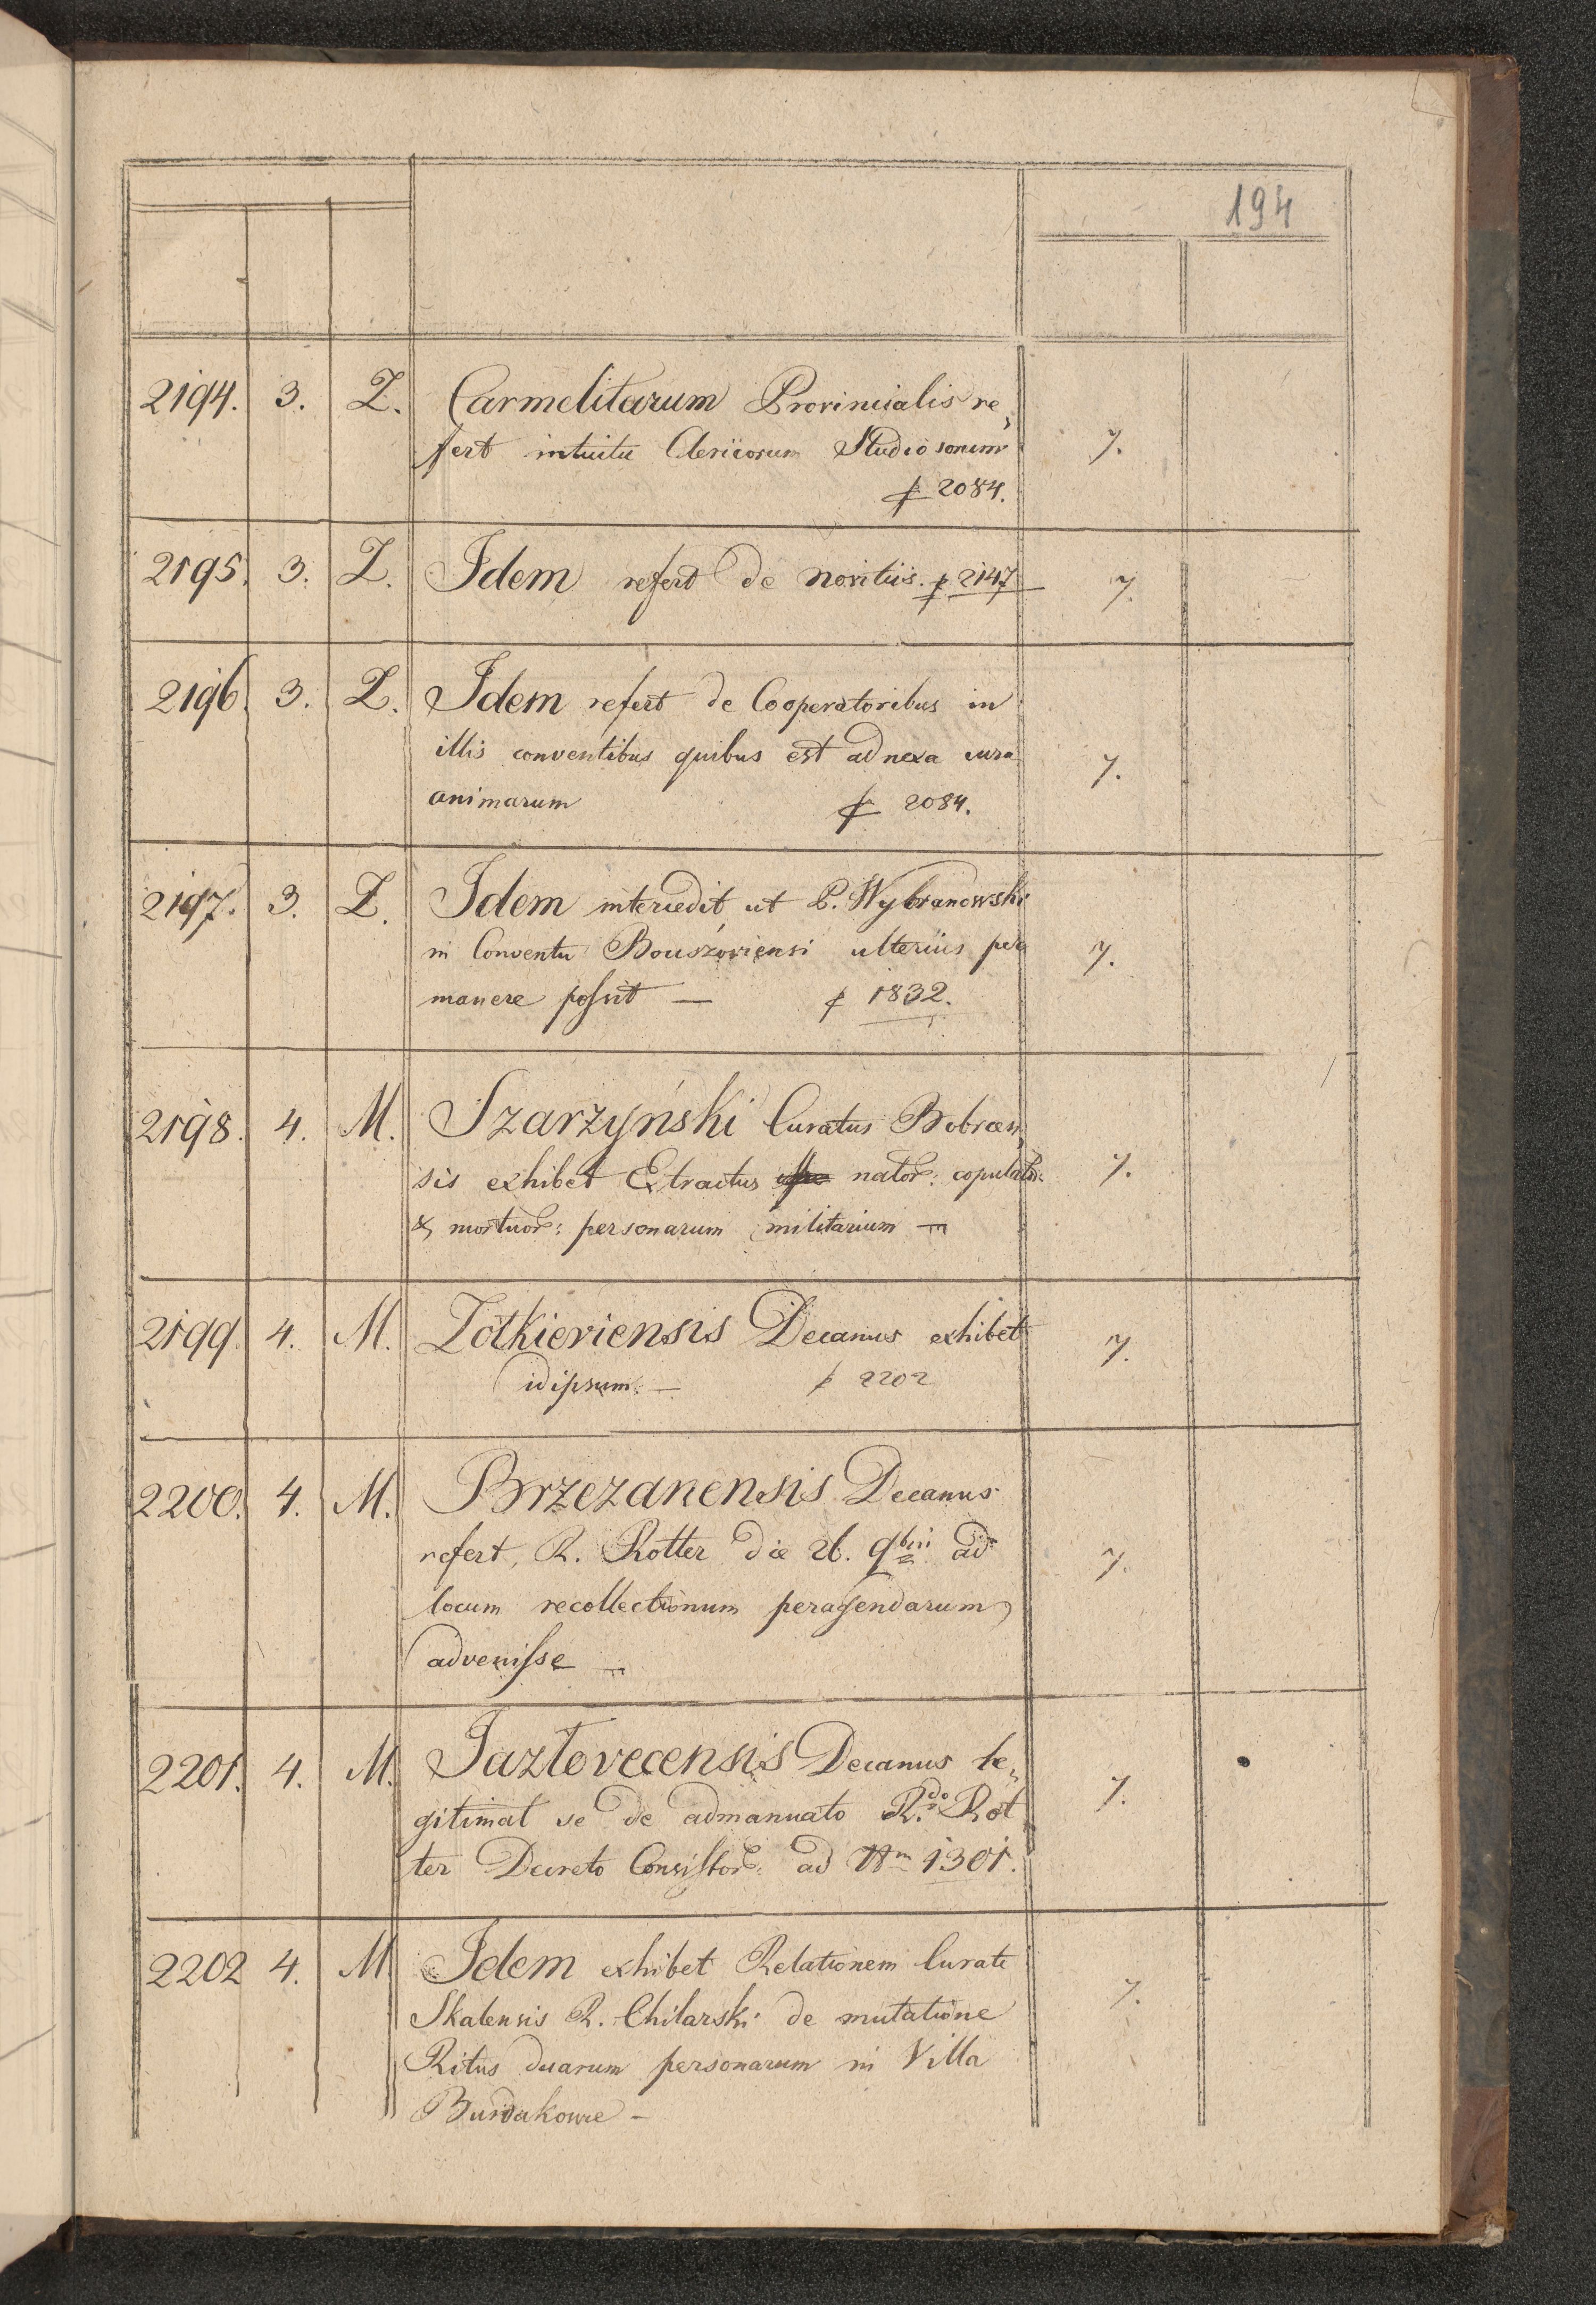 194
2194. 3. Z. Carmelitarum Provincialis re„
fert intuitu Clericorum Studiosorum 7.
p 2084.
2195. 3. Z. Idem refert de Novitiis. p 2147 7.
2196. 3. Z. Idem refert de Cooperatoribus in
illis conventibus quibus est adnexa cura 7.
animarum p 2084.
2197. 3. Z. Idem intercedit ut P. Wybranowski
in Conventu Bouszoviensi ulterius per 7.
manere possit — p 1832.
2198. 4. M. Szarzyński Curatus Bobrcen„
sis exhibet Extractus nator: copulator: 7.
& mortuor: personarum militarium —
2199 4. M. Zołkieviensis Decanus exhibet 7.
idipsum. — p 2202
2200. 4. M. Brzezanensis Decanus
refert, R. Rotter die 26. 9bris ad 7.
locum recollectionum peragendarum
advenisse —
2201. 4. M. Jazłovecensis Decanus le„
gitimat se de admanuato R.do Rot 7.
ter Decreto Consistor: ad Nm 1301.
2202 4. M Idem exhibet Relationem Curati
Skalensis R. Chilarski de mutatione 7.
Ritus duarum personarum in Villa
Burdakowce –